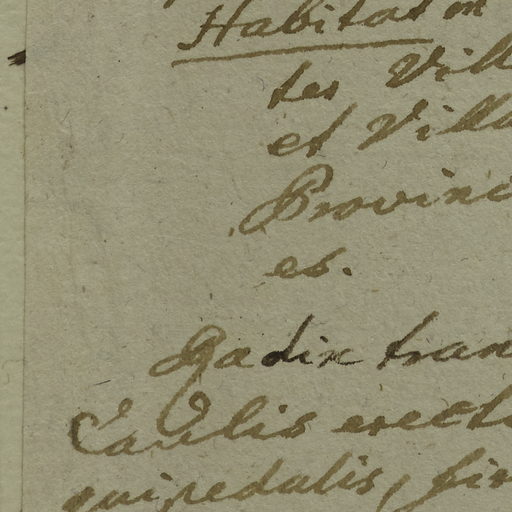 Habitat in
ter Vill
et Villa
Provinc
es.
Radix tran
Caulis erect
quipedalis, sim